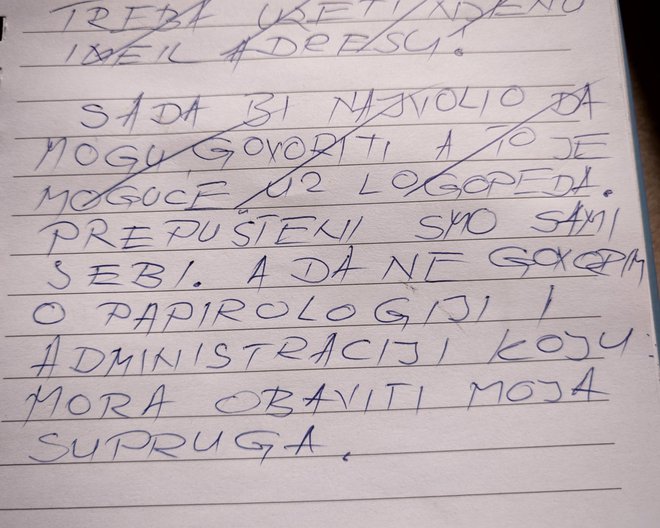 TREBA UZETI NJENU
IMEIL ADRESU!
SADA BI NAJVOLIO DA
MOGU GOVORITI A TO JE
MOGUĆE UZ LOGOPEDA.
PREPUŠTENI SMO SAMI
SEBI. A DA NE GOVORIM
O PAPIROLOGIJI I
ADMINISTRACIJI KOJU
MORA OBAVITI MOJA
SUPRUGA.